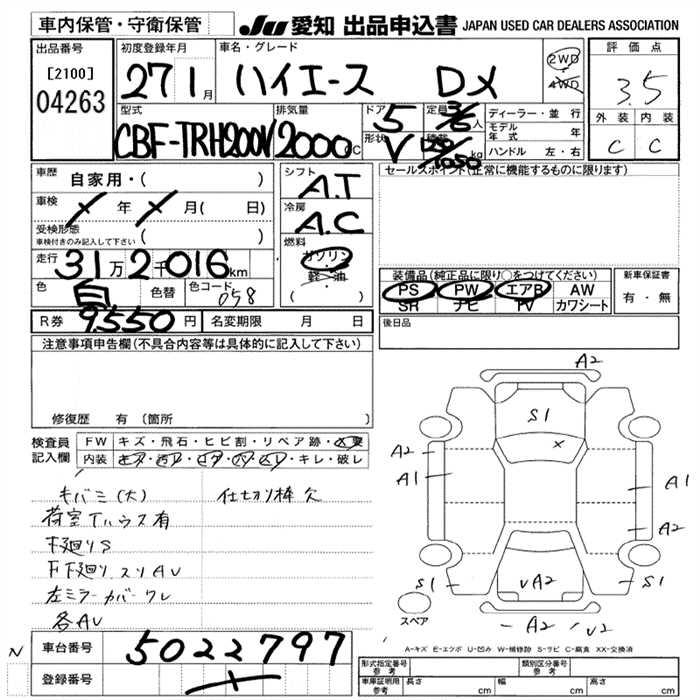 車内保管・守衛保管
JU 愛知 出品申込書 JAPAN USED CAR DEALERS ASSOCIATION
出品番号 [2100] 04263
初度登録年月 27 1月
車名・グレード ハイエース DX
2WD 4WD
評価点 3.5
外装 内装
C C
型式 CBF-TRH200V
排気量 2000cc
ドア 5
形状 V
定員 3/6人
積載 kg
ディーラー・並行
モデル年式 年
ハンドル 左・右
車歴 自家用・( )
車検 × 年 × 月( 日)
受検形態 ( )
車検付きのみ記入して下さい
走行 31万2千016km
色 白 色替 色コード 058
R券 9,550円 名変期限 月 日
シフト A.T
冷房 A.C
燃料 ガソリン
軽・油
( )
セールスポイント(正常に機能するものに限ります)
装備品(純正品に限り○をつけてください)
PS PW エアB AW
SR ナビ TV カワシート
新車保証書
有・無
後日品
注意事項申告欄(不具合内容等は具体的に記入して下さい)
修復歴 有 (箇所
検査員記入欄
FW キズ・飛石・ヒビ割・リペア跡・
内装 ・キレ・破レ
キバミ(大) 仕切り棒欠
荷室ハウス有
下廻りS
F下廻りスリAU
左ミラーカバーワレ
各AU
A2
S1
×
A2
A1 A1
A2
S1 S1
UA2
スペア
A2 U2
A-キズ E-エクボ U-凹み W-補修跡 S-サビ C-腐食 XX-交換済
N
車台番号 5022797
登録番号
形式指定番号 参考
類別区分番号 参考
車庫証明用 参考 長さ cm 幅 cm 高さ cm